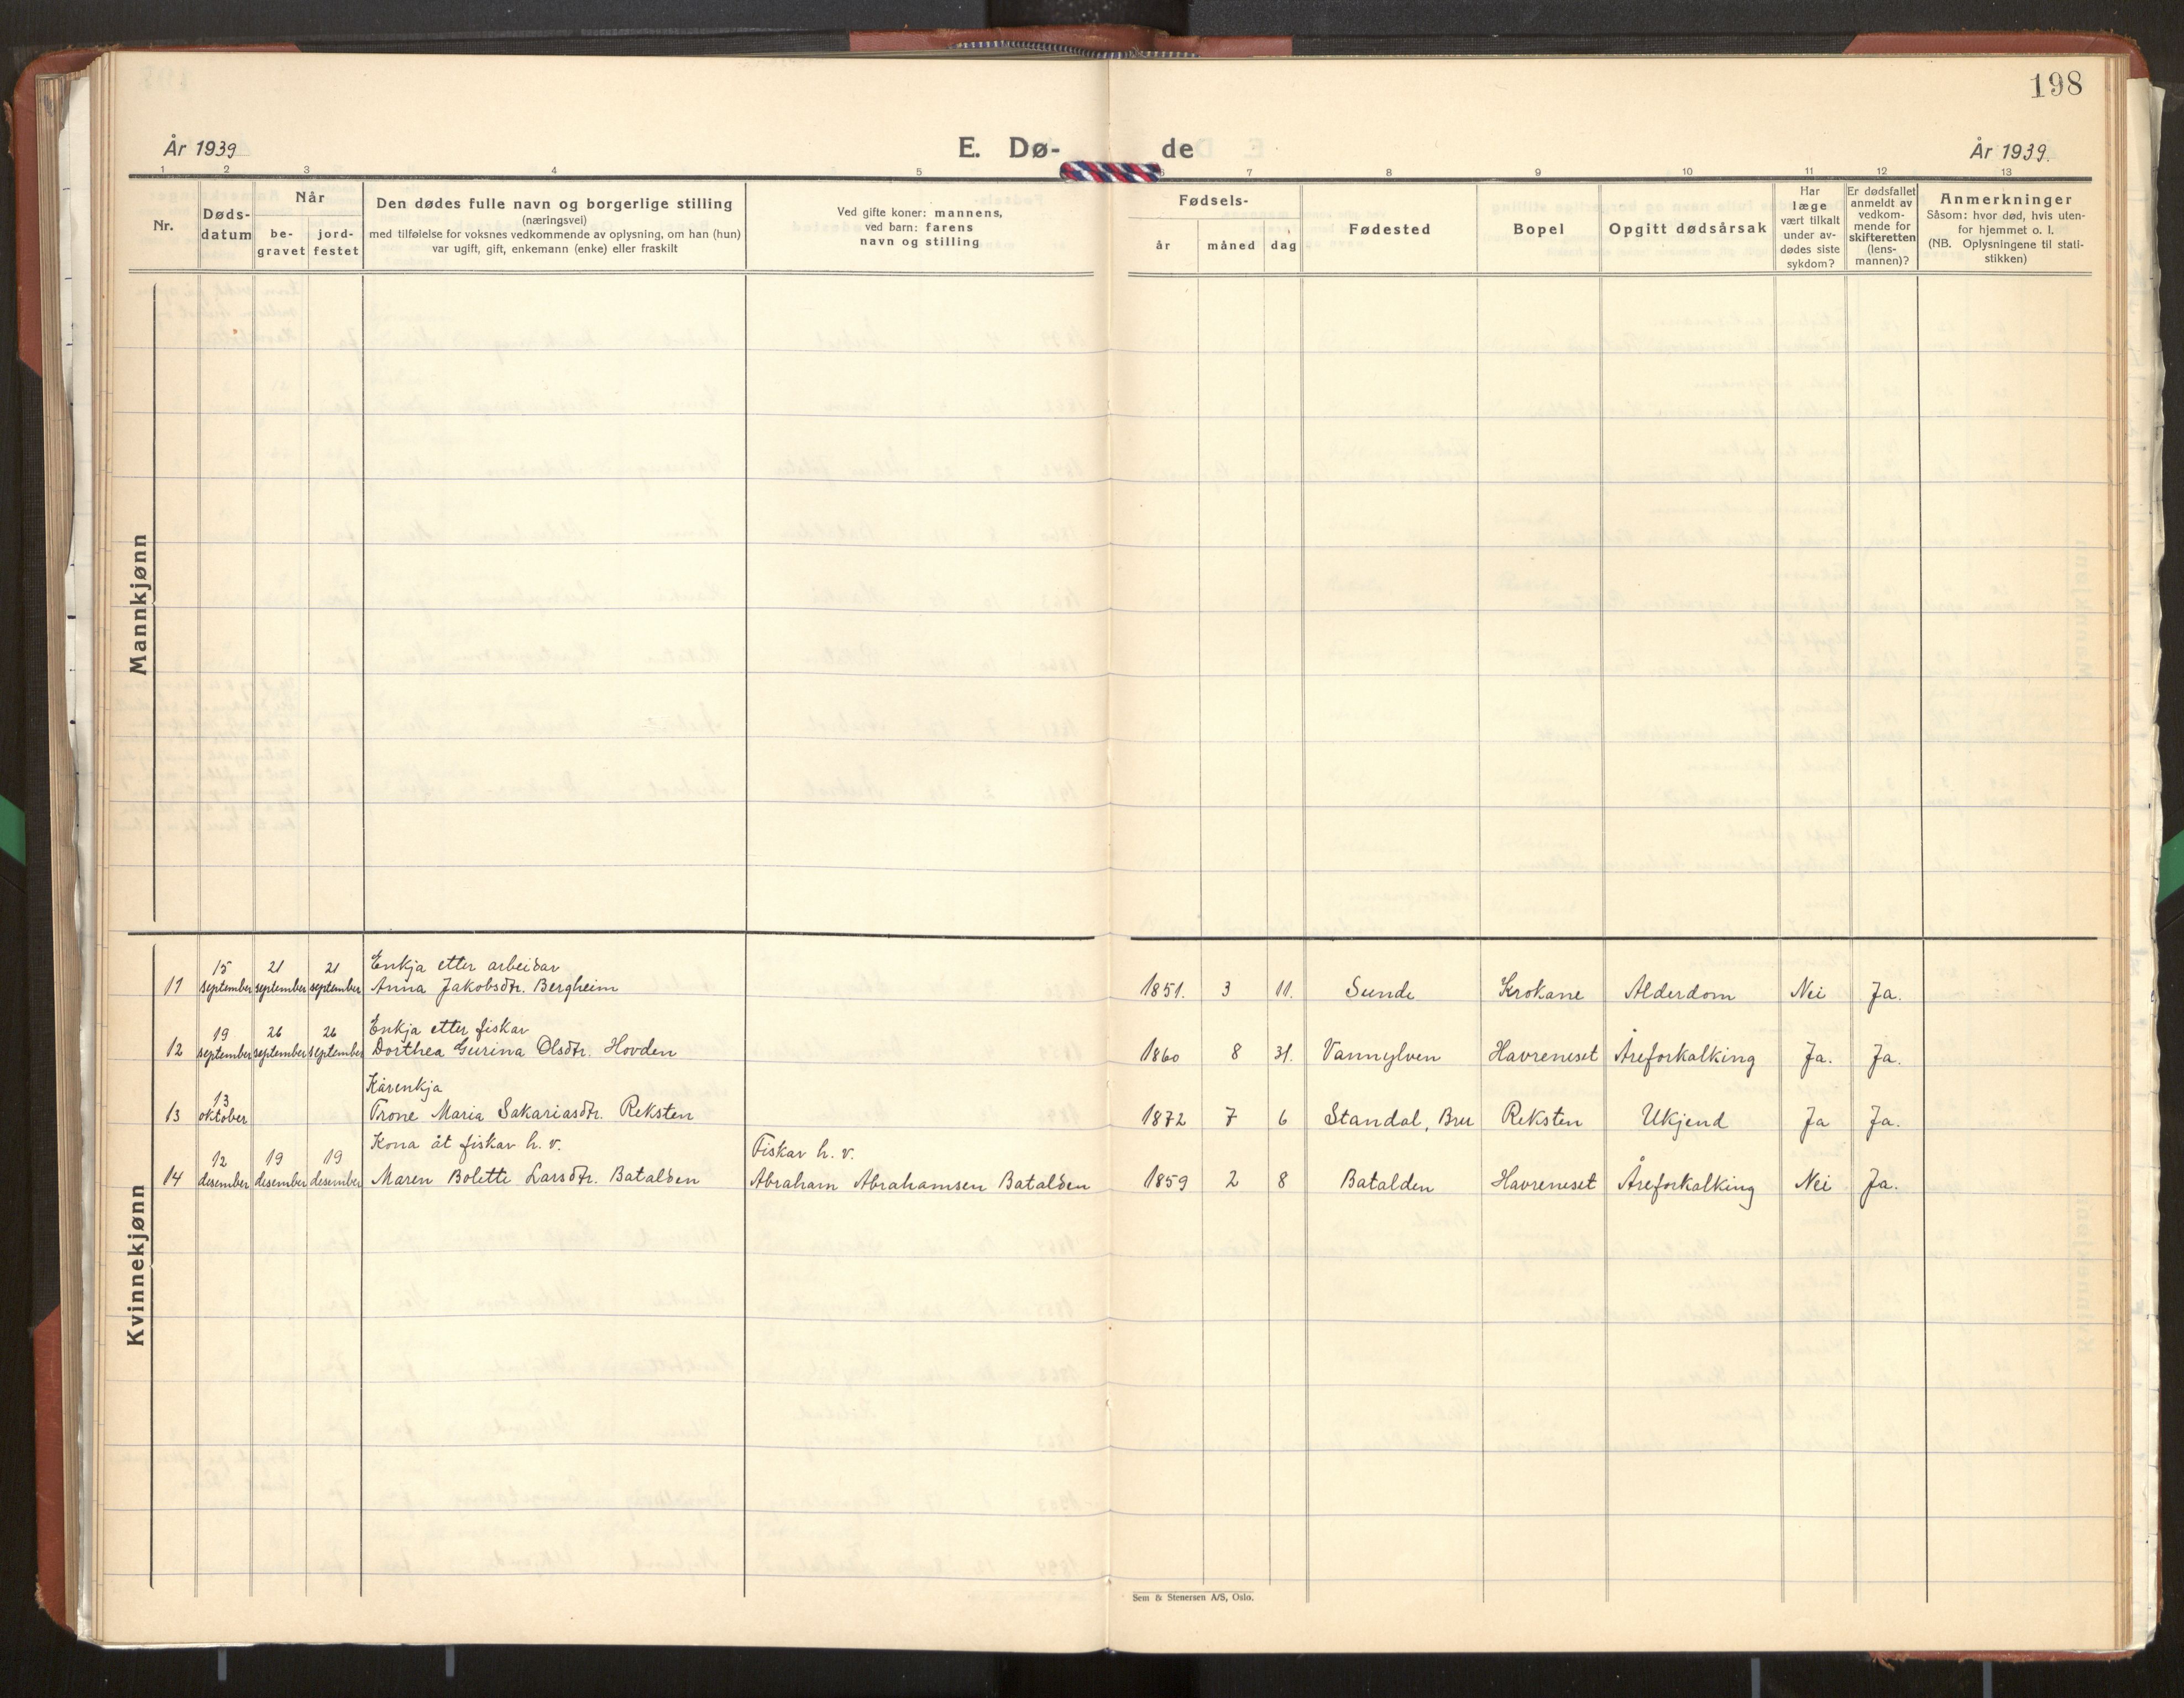 198
År 1939
E. Dø-
de
År 1939.
1 2 3 4 5 6 7 8 9 10 11 12 13
Nr.
Døds-
datum
Når
be-
gravet
jord-
festet
Den dødes fulle navn og borgerlige stilling
(næringsvei)
med tilføielse for voksnes vedkommende av oplysning, om han (hun)
var ugift, gift, enkemann (enke) eller fraskilt
Ved gifte koner: mannens,
ved barn: farens
navn og stilling
Fødsels-
år måned dag
Fødested
Bopel
Opgitt dødsårsak
Har
læge
vært tilkalt
under av-
dødes siste
sykdom?
Er dødsfallet
anmeldt av
vedkom-
mende for
skifteretten
(lens-
mannen)?
Anmerkninger
Såsom: hvor død, hvis uten-
for hjemmet o. l.
(NB. Oplysningene til stati-
stikken)
Mannkjønn
Kvinnekjønn
15 21 21 Enkja etter arbeidar
11 september september september Anna Jakobsdtr. Bergheim 1851. 3 11. Sunde Krokane Alderdom Nei Ja.
19 26 26 Enkja etter fiskar
12 september september september Dorthea Gurina Olsdtr. Hovden 1860 8 31. Vannylven Havreneset Åreforkalking Ja. Ja.
13 Kårenkja
13 oktober Trone Maria Sakariasdtr. Reksten 1872 7 6 Standal, Bru Reksten Ukjend Ja Ja.
12 19 19 Kona åt fiskar h. v. Fiskar h. v.
14 desember desember desember Maren Bolette Larsdtr. Batalden Abraham Abrahamsen Batalden 1859 2 8 Batalden Havreneset Åreforkalking Nei Ja.
Sem & Stenersen A/S, Oslo.